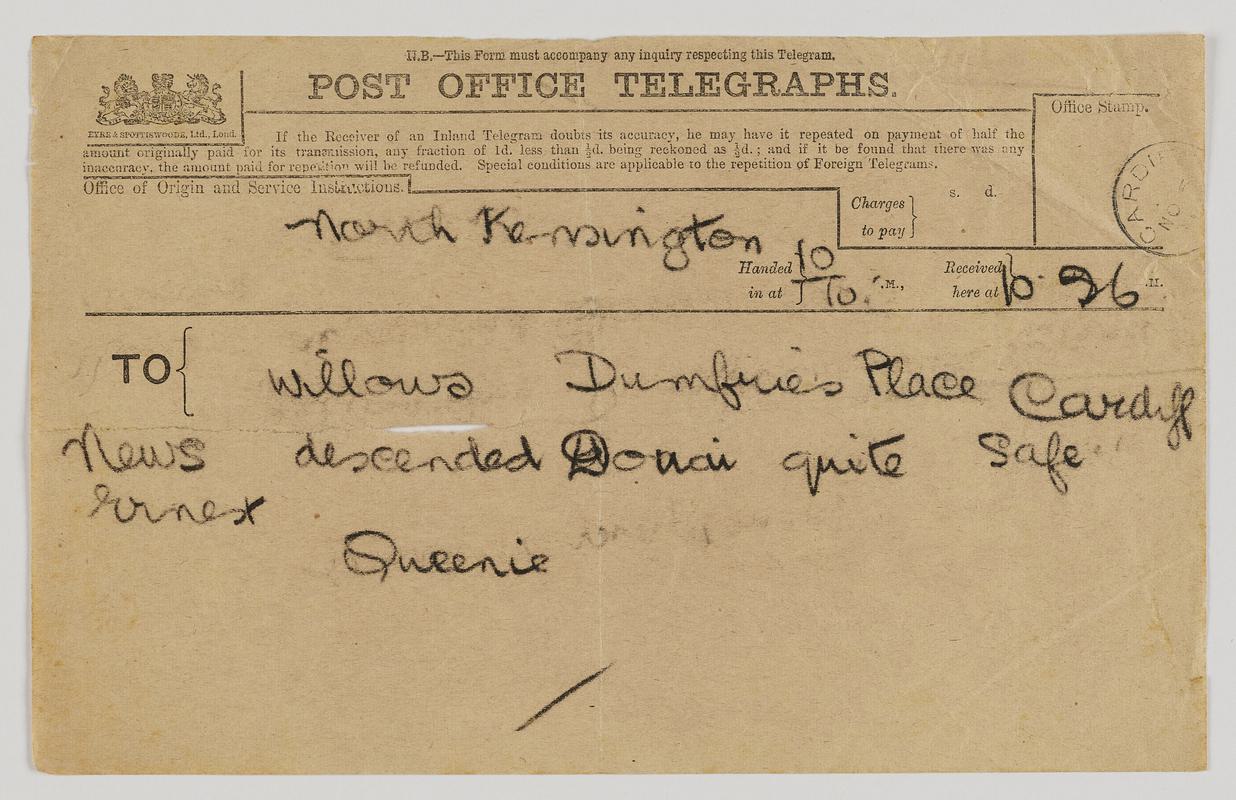 N.B.—This Form must accompany any inquiry respecting this Telegram.
POST OFFICE TELEGRAPHS.
EYRE & SPOTTISWOODE, Ltd., Lond.
If the Receiver of an Inland Telegram doubts its accuracy, he may have it repeated on payment of half the
amount originally paid for its transmission, any fraction of 1d. less than ½d. being reckoned as ½d.; and if it be found that there was any
inaccuracy, the amount paid for repetition will be refunded. Special conditions are applicable to the repetition of Foreign Telegrams.
Office Stamp.
CARDIF
NO
Office of Origin and Service Instructions.
s. d.
Charges
to pay
North Kensington
Handed
in at
10
10
.M.,
Received
here at
10 26
.M.
TO
Willows Dumfries Place Cardiff
News descended Douai quite Safe
Ernest
Queenie